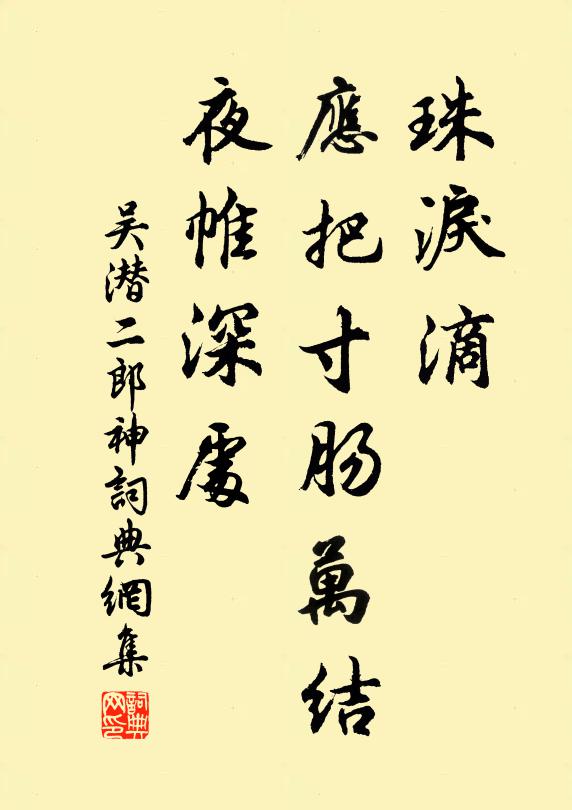 珠淚滴
應把寸肠萬結
夜帷深處
吴潛二郎神詞典網集
詞典網印